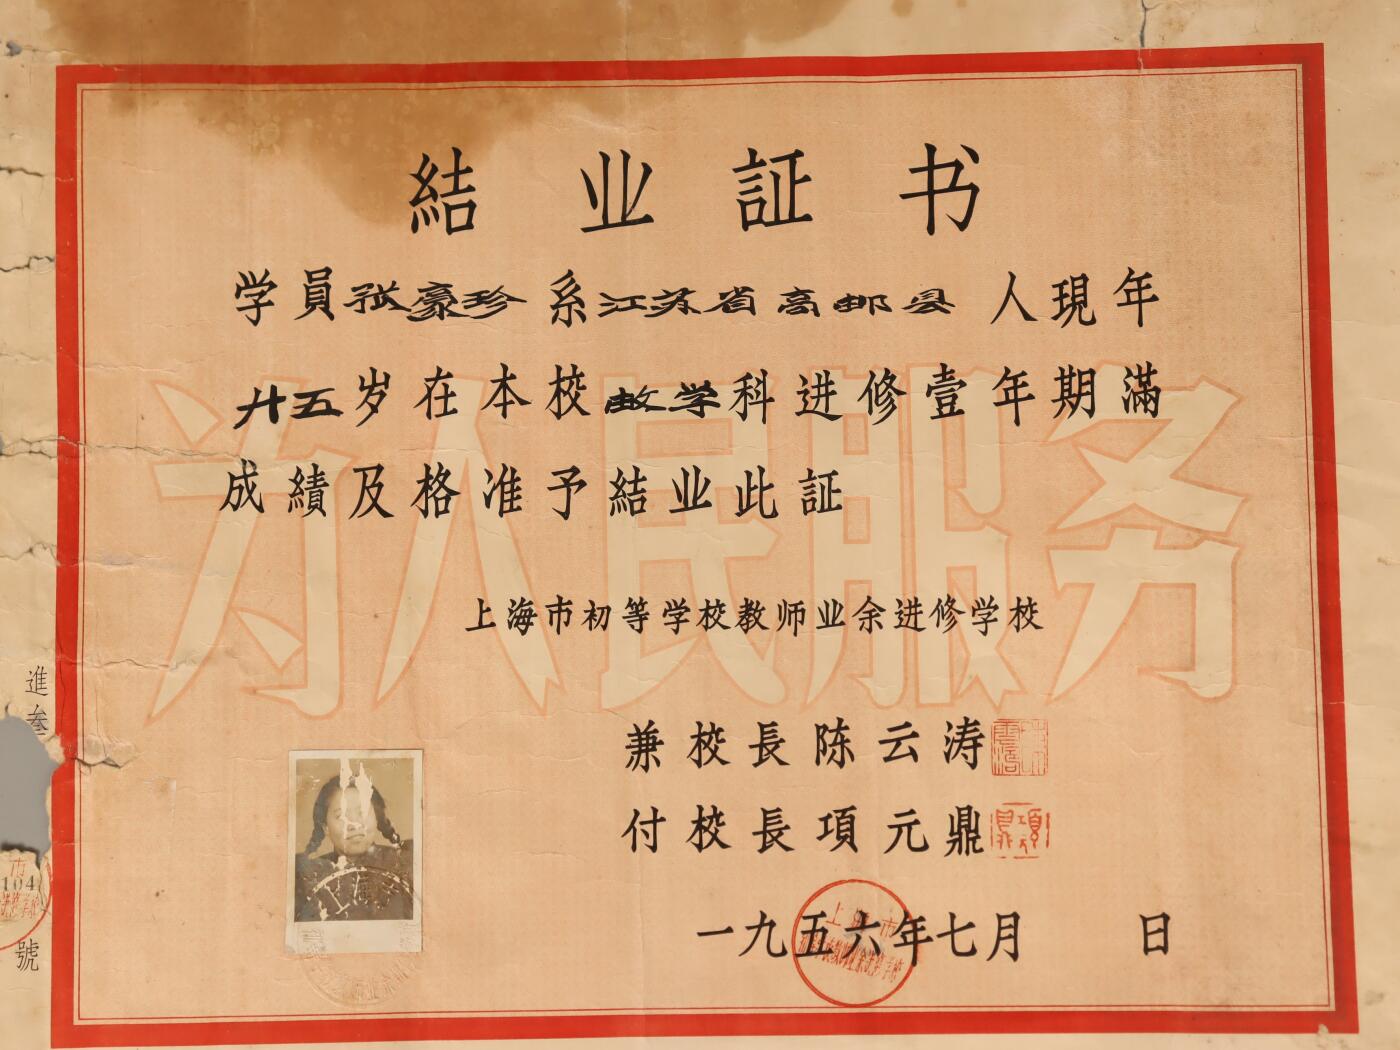 結业証书
学員张豪珍系江苏省高邮县人現年
廿五岁在本校教学科进修壹年期滿
成績及格准予結业此証
为人民服务
上海市初等学校教师业余进修学校
兼校長陈云涛
付校長項元鼎
一九五六年七月 日
上海市
進叁
市
104
號